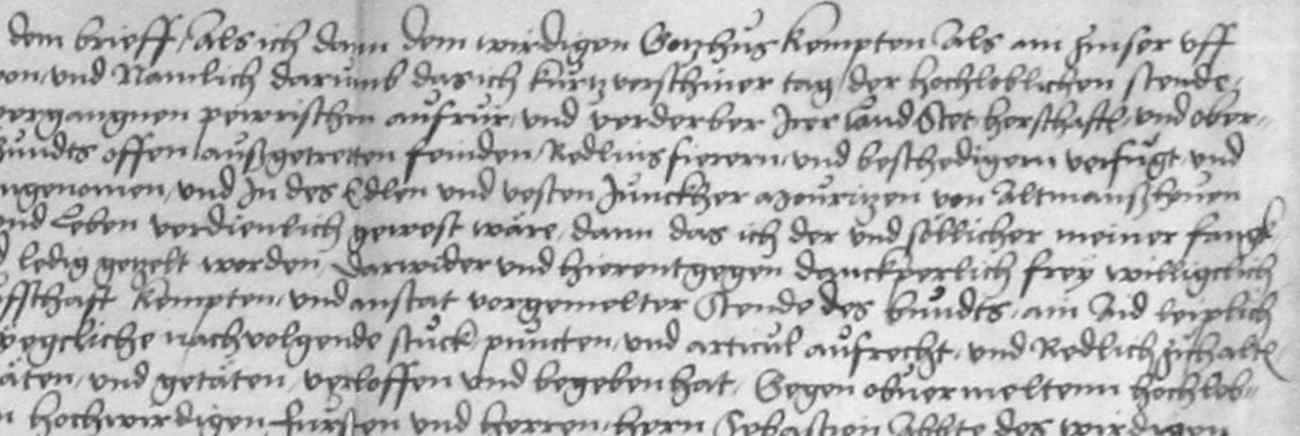 dem brieff, Als ich dann dem wirdigen Gotzhus Kempten Als ain zinser vff
von, vnd Namlich darumb das ich kurtz verschiner tag, der hochloblichen stende,
vergangnen pewrischen aufrur, vnd verderber Irer Land Stet herschafft, vnd ober-
bundts offen außgetretten feinden, Redlinsfierern, vnd beschedigern verfugt, vnd
angenomen, vnd In des Edlen vnd vesten Junckher Mouritzen von Altmanßhouen
vnd Leben verdienlich gewest wäre, dann das ich der vnd söllicher meiner fangk
ledig getzelt worden, Darwider vnd hierentgegen danckperlich frey williglich
Kempten, vnd anstat vorgemelter Stende des bundts, ain Aid leiplich
yegcliche nachvolgende stuck, puncten, vnd articul aufrecht, vnd Redlich zuhalten
vnd getäten, verloffen vnd begeben hat, Gegen obuermeltenn hochlob-
hochwirdigen fursten vnd herren, hern Sebastion Abbte des wirdigen